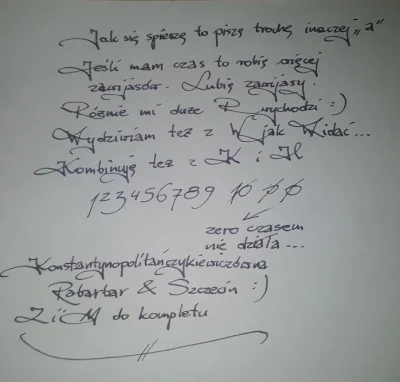 Jak się spieszę to piszę trochę inaczej „a”
Jeśli mam czas to robię więcej
zawijasów. Lubię zawijasy.
Różnie mi duże R wychodzi :)
Wydziwiam też z W jak Widać...
Kombinuję też z K i H
123456789 10 00
zero czasem
nie działa...
Konstantynopolitańczykiewiczówna
Rabarbar & Szczecin :)
Z i M do kompletu